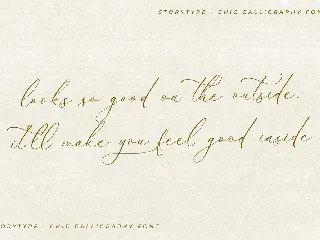 STORYTYPE - CHIC CALLIGRAPHY FON
looks so good on the outside
it'll make you feel good inside
ORYTYPE - CHIC CALLIGRAPHY FONT